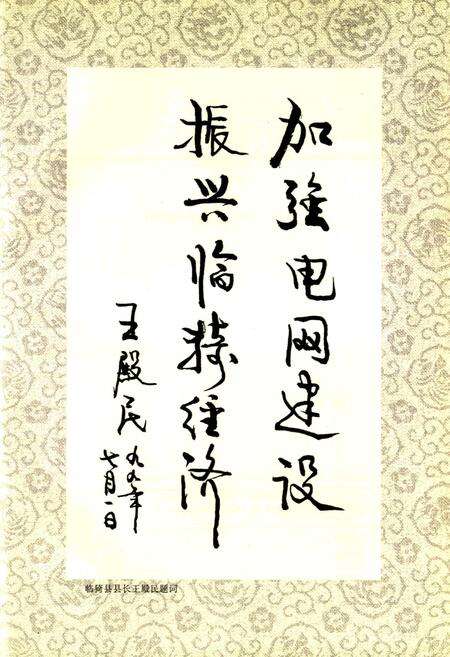 加强电网建设
振兴临猗经济
王殿民
九九年
七月一日
临猗县县长王殿民题词